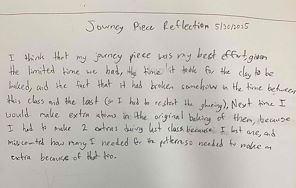 Journey Piece Reflection 5/30/2025
I think that my journey piece was my best effort, given
the limited time we had, the time it took for the clay to be
baked, and the fact that it had broken somehow in the time between
this class and the last (so I had to restart the glueing). Next time I
would make extra in the original baking of them, because
I had to make 2 extras during last class because I lost one, and
miscounted how many I needed for the pattern so needed to make an
extra because of that too.